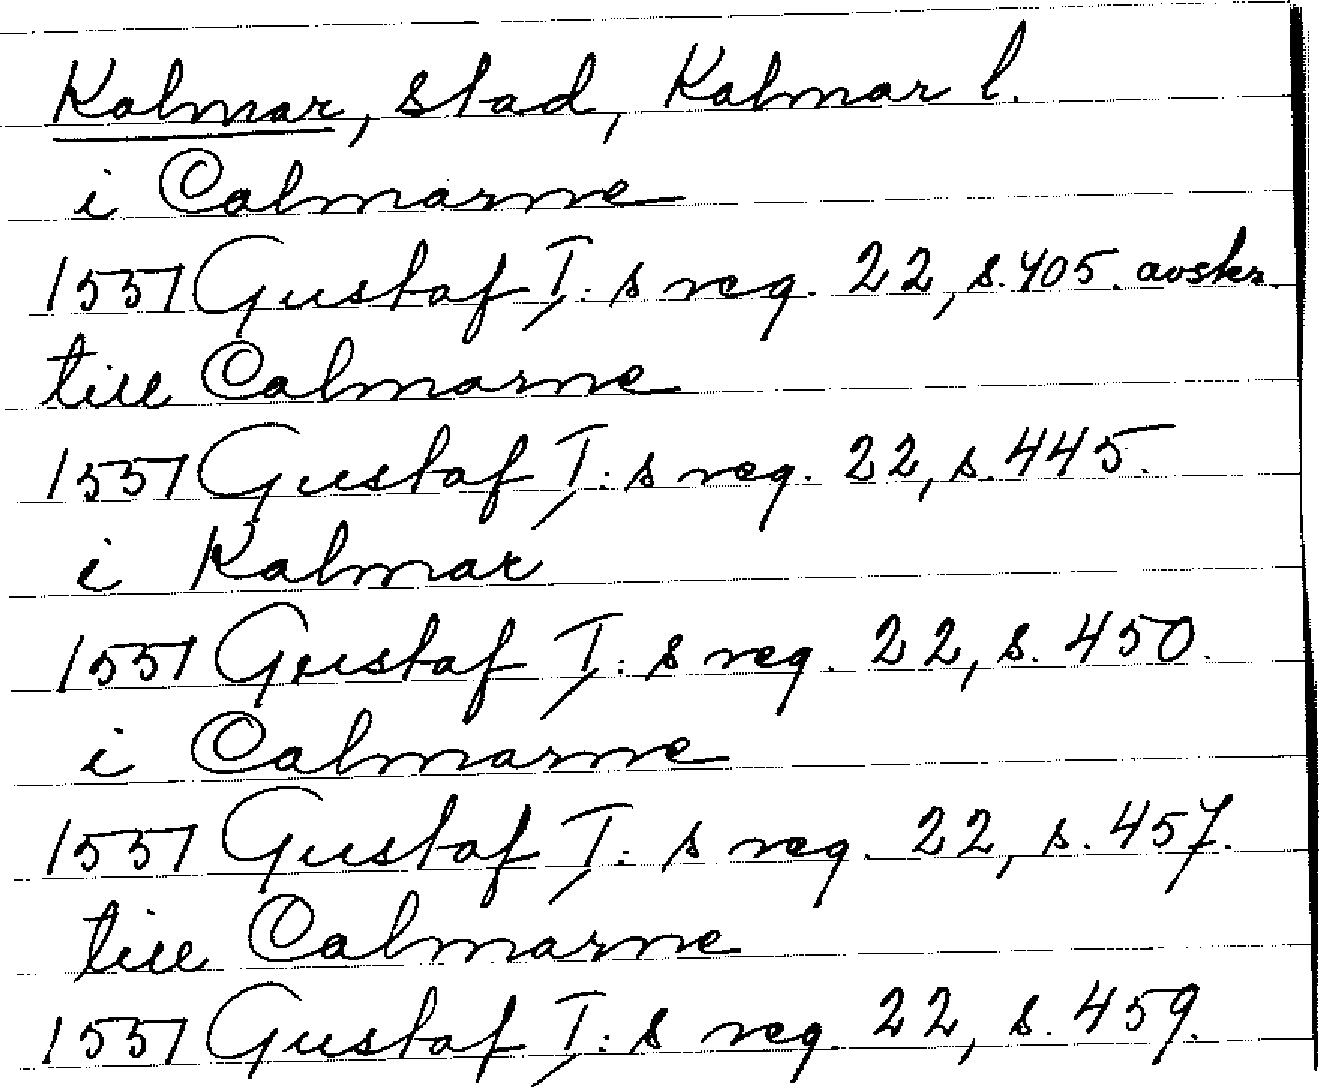 Kalmar, stad, Kalmar l.
i Calmarne
1551 Gustaf I: s reg. 22, s. 405. avskr.
till Calmarne
1551 Gustaf I: s reg. 22, s. 445.
i Kalmar
1551 Gustaf I: s reg. 22, s. 450.
i Calmarne
1551 Gustaf I: s reg. 22, s. 457.
till Calmarne
1551 Gustaf I: s reg. 22, s. 459.